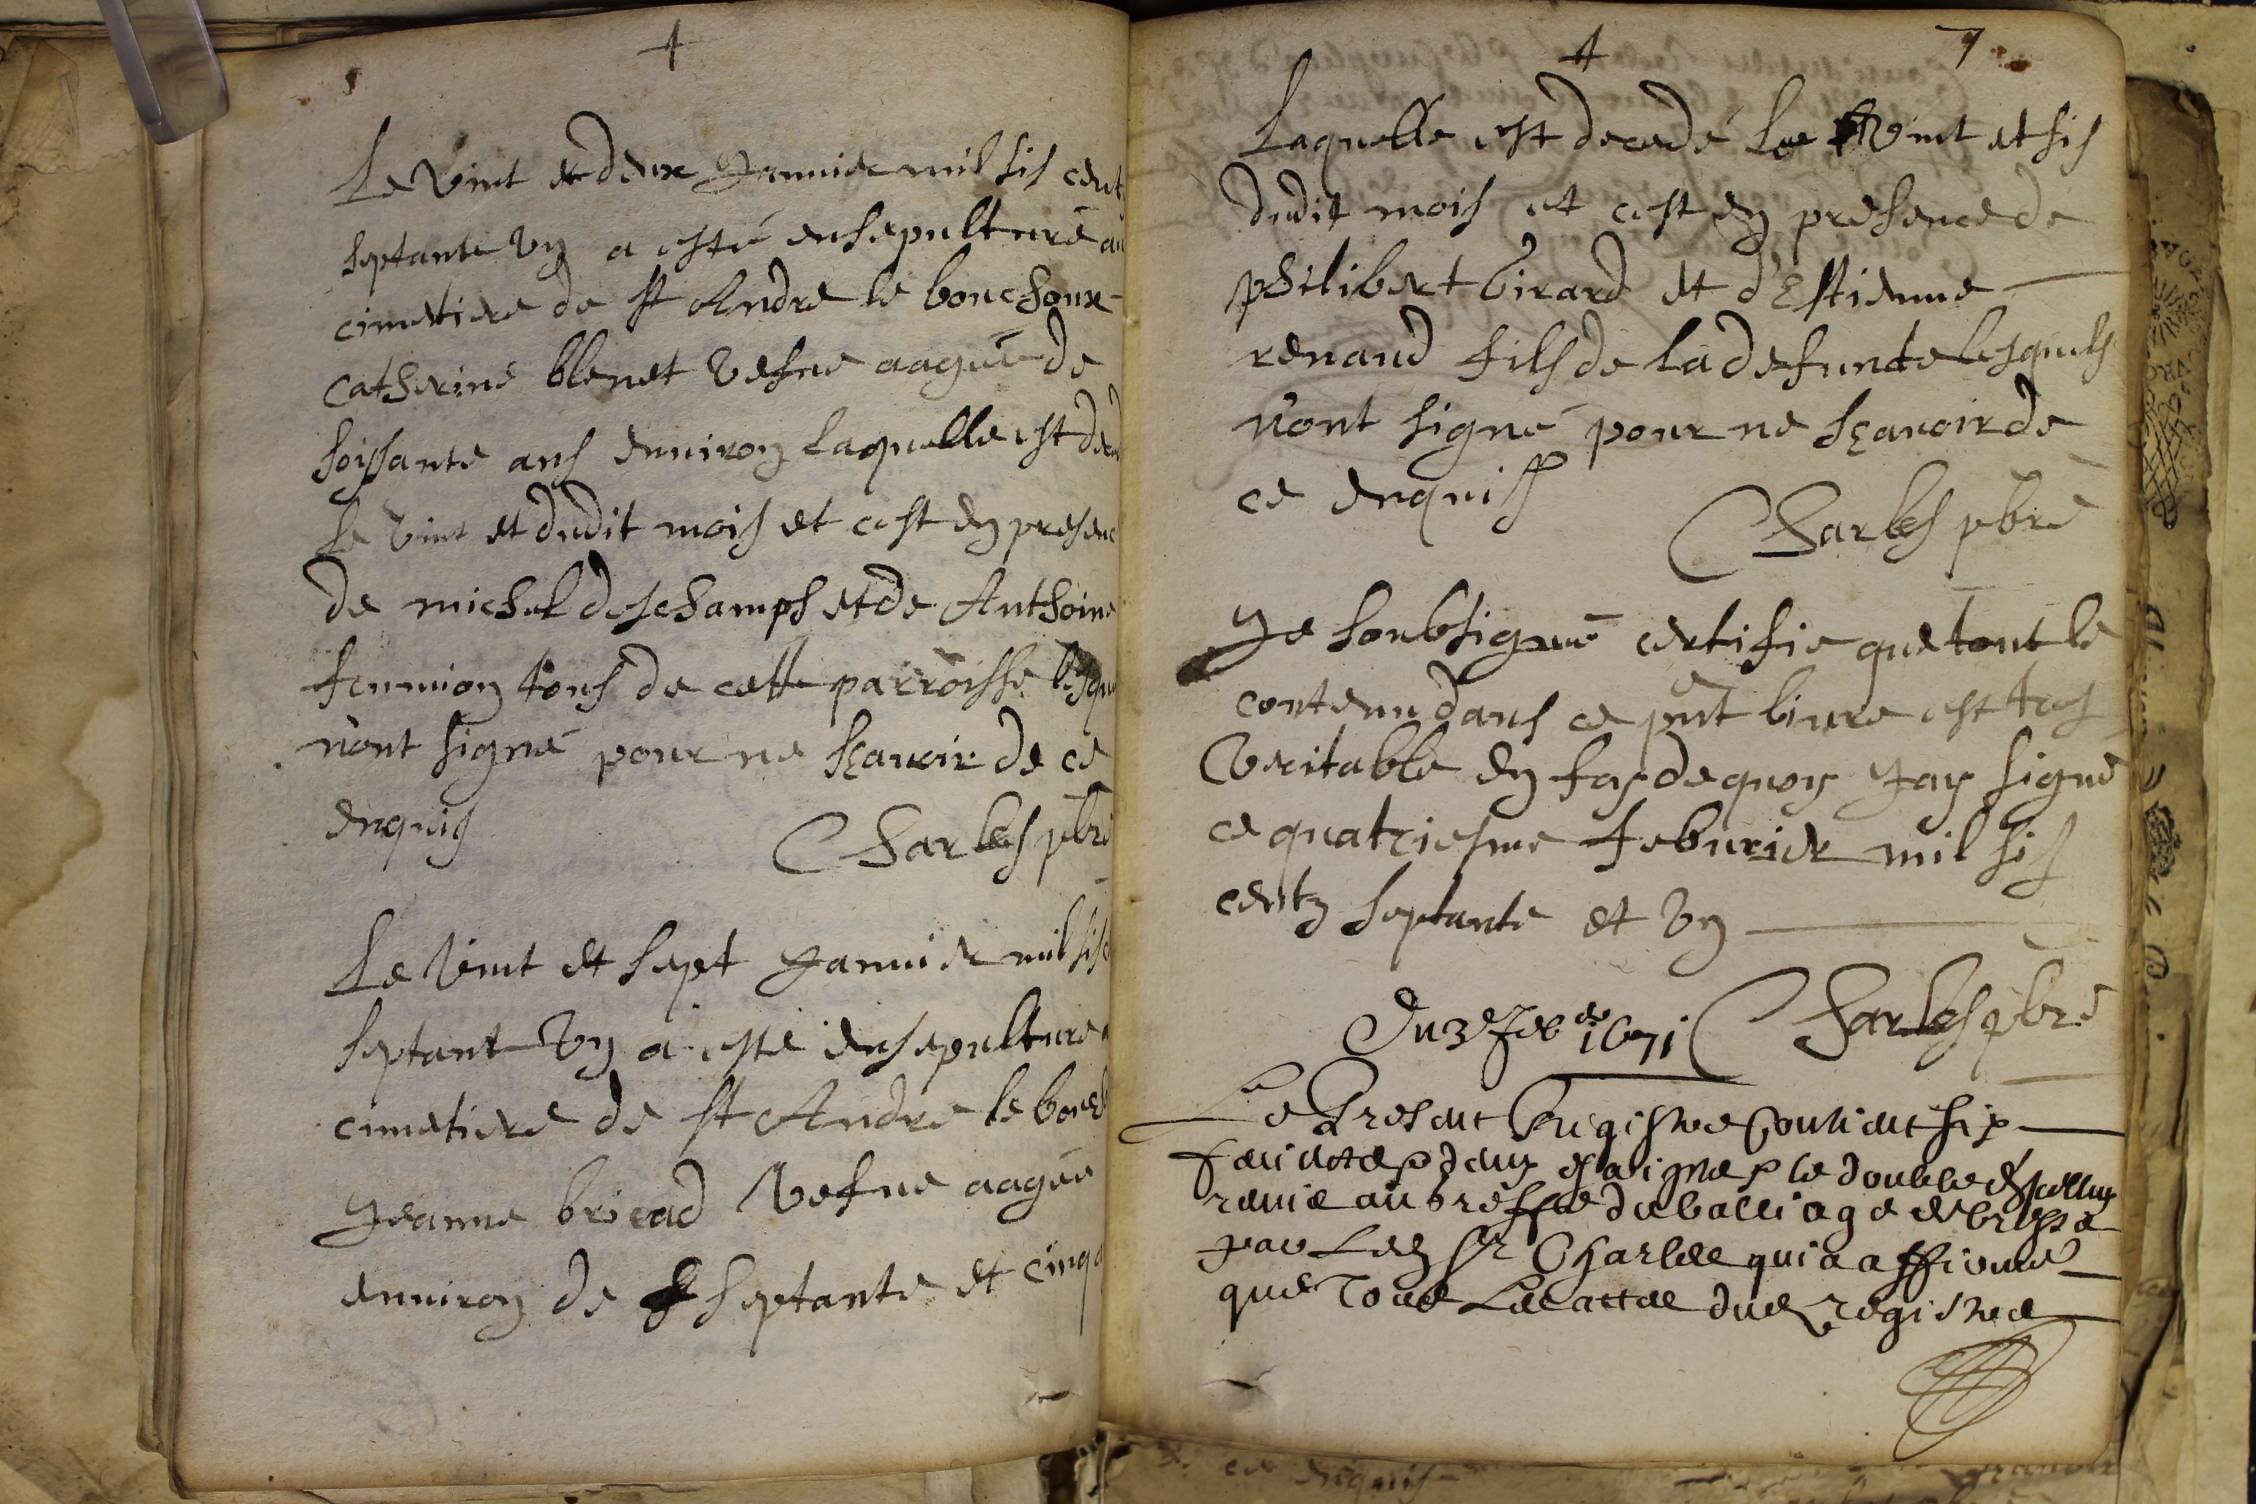 Le vint et deux Januier mil sis centz
septante vn a esté ensepulturé au
cimetiere de st Andre le bouchoux
catherine blenet vefue aagée de
soissante ans enuiron laquelle est
le vint et dudit mois et cest en presence
de michel deschamps et de Anthoine
tous de cette parroisse
n'ont signé pour ne sçauoir de ce
enquis
Charles pbre
Le vint et sept Januier mil sis
septant vn a esté ensepulture
cimetiere de st Andre le
Jeanne bricad vefue aagée
enuiron de septante et cinq
7
Laquelle est decedé Le vint et sis
dudit mois et cest en presence de
philibert Girard et d'Estienne
renaud fils de la defuncte lesquels
n'ont signé pour ne sçauoir de
ce enquis
Charles pbre
Je soubsigné certifie que tout le
contenu dans ce pnt liure est tres
veritable en foy de quoy Jay signé
ce quatriesme feburier mil sis
centz septante et vn
Charles pbre
Du 3e Feb 1671
Le Present Registre Contient six
feuilletz dont le double
remis au greffe du balliage de bresse
par Led Sr Charles qui a affirmé
que Tous Les actes dud registre